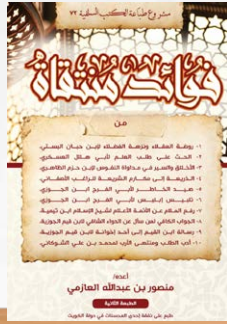 مشروع طباعة الكتب السلفية ٧٧
فوائد منتقاة
من
١- روضة العقلاء ونزهة الفضلاء لابن حبان البستي.
٢- الحث على طلب العلم لأبي هلال العسكري.
٣- الأخلاق والسير في مداواة النفوس لابن حزم الظاهري.
٤- الذريعة إلى مكارم الشريعة للراغب الأصفهاني.
٥- صيد الخاطر لأبي الفرج ابن الجوزي.
٦- تلبيس إبليس لأبي الفرج ابن الجوزي.
٧- رفع الملام عن الأئمة الأعلام لشيخ الإسلام ابن تيمية.
٨- الجواب الكافي لمن سأل عن الدواء الشافي لابن قيم الجوزية.
٩- رسالة ابن القيم إلى أحد إخوانه لابن قيم الجوزية.
١٠- أدب الطلب ومنتهى الأرب لمحمد بن علي الشوكاني.
أعده/
منصور بن عبدالله العازمي
الطبعة الثانية
طبع على نفقة إحدى المحسنات في دولة الكويت